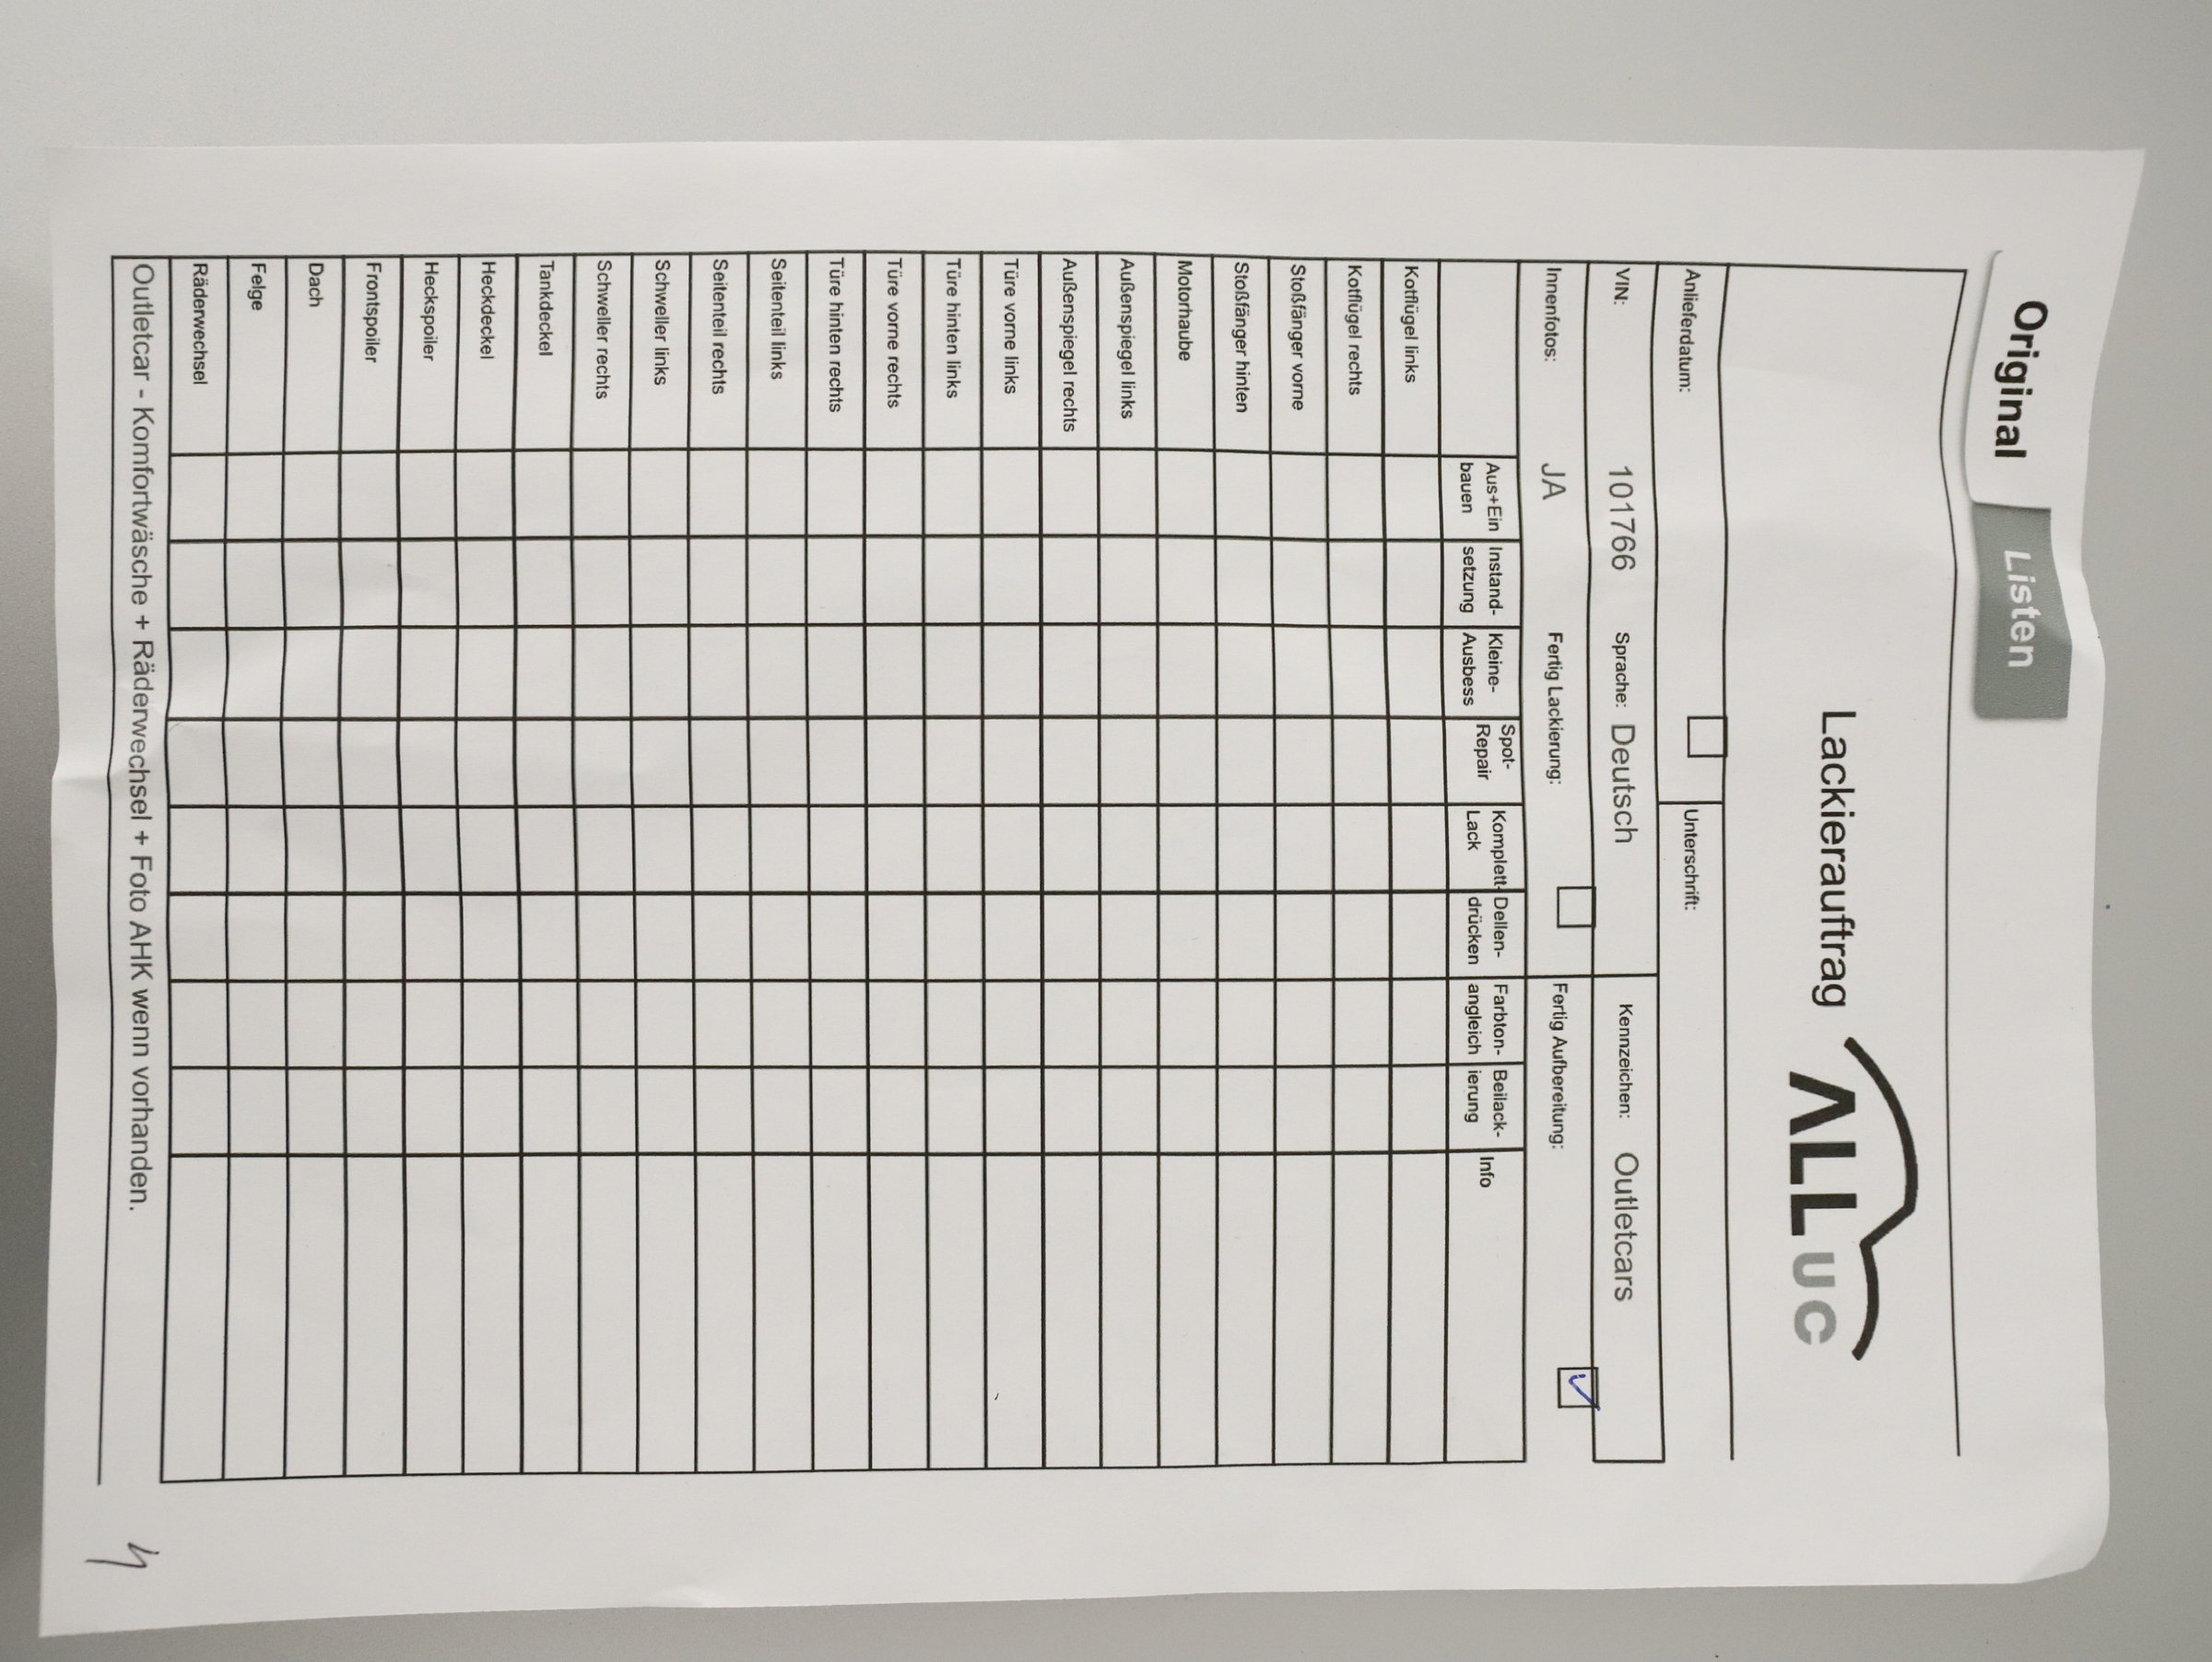 Original Listen
Lackierauftrag
ALL uc
Anlieferdatum: Unterschrift:
VIN: 101766 Sprache: Deutsch Kennzeichen: Outletcars
Innenfotos: JA Fertig Lackierung: Fertig Aufbereitung:
Aus+Ein bauen Instand-setzung Kleine-Ausbess Spot-Repair Komplett-Lack Dellen-drücken Farbton-angleich Beilack-ierung Info
Kotflügel links
Kotflügel rechts
Stoßfänger vorne
Stoßfänger hinten
Motorhaube
Außenspiegel links
Außenspiegel rechts
Türe vorne links
Türe hinten links
Türe vorne rechts
Türe hinten rechts
Seitenteil links
Seitenteil rechts
Schweller links
Schweller rechts
Tankdeckel
Heckdeckel
Heckspoiler
Frontspoiler
Dach
Felge
Räderwechsel
Outletcar - Komfortwäsche + Räderwechsel + Foto AHK wenn vorhanden.